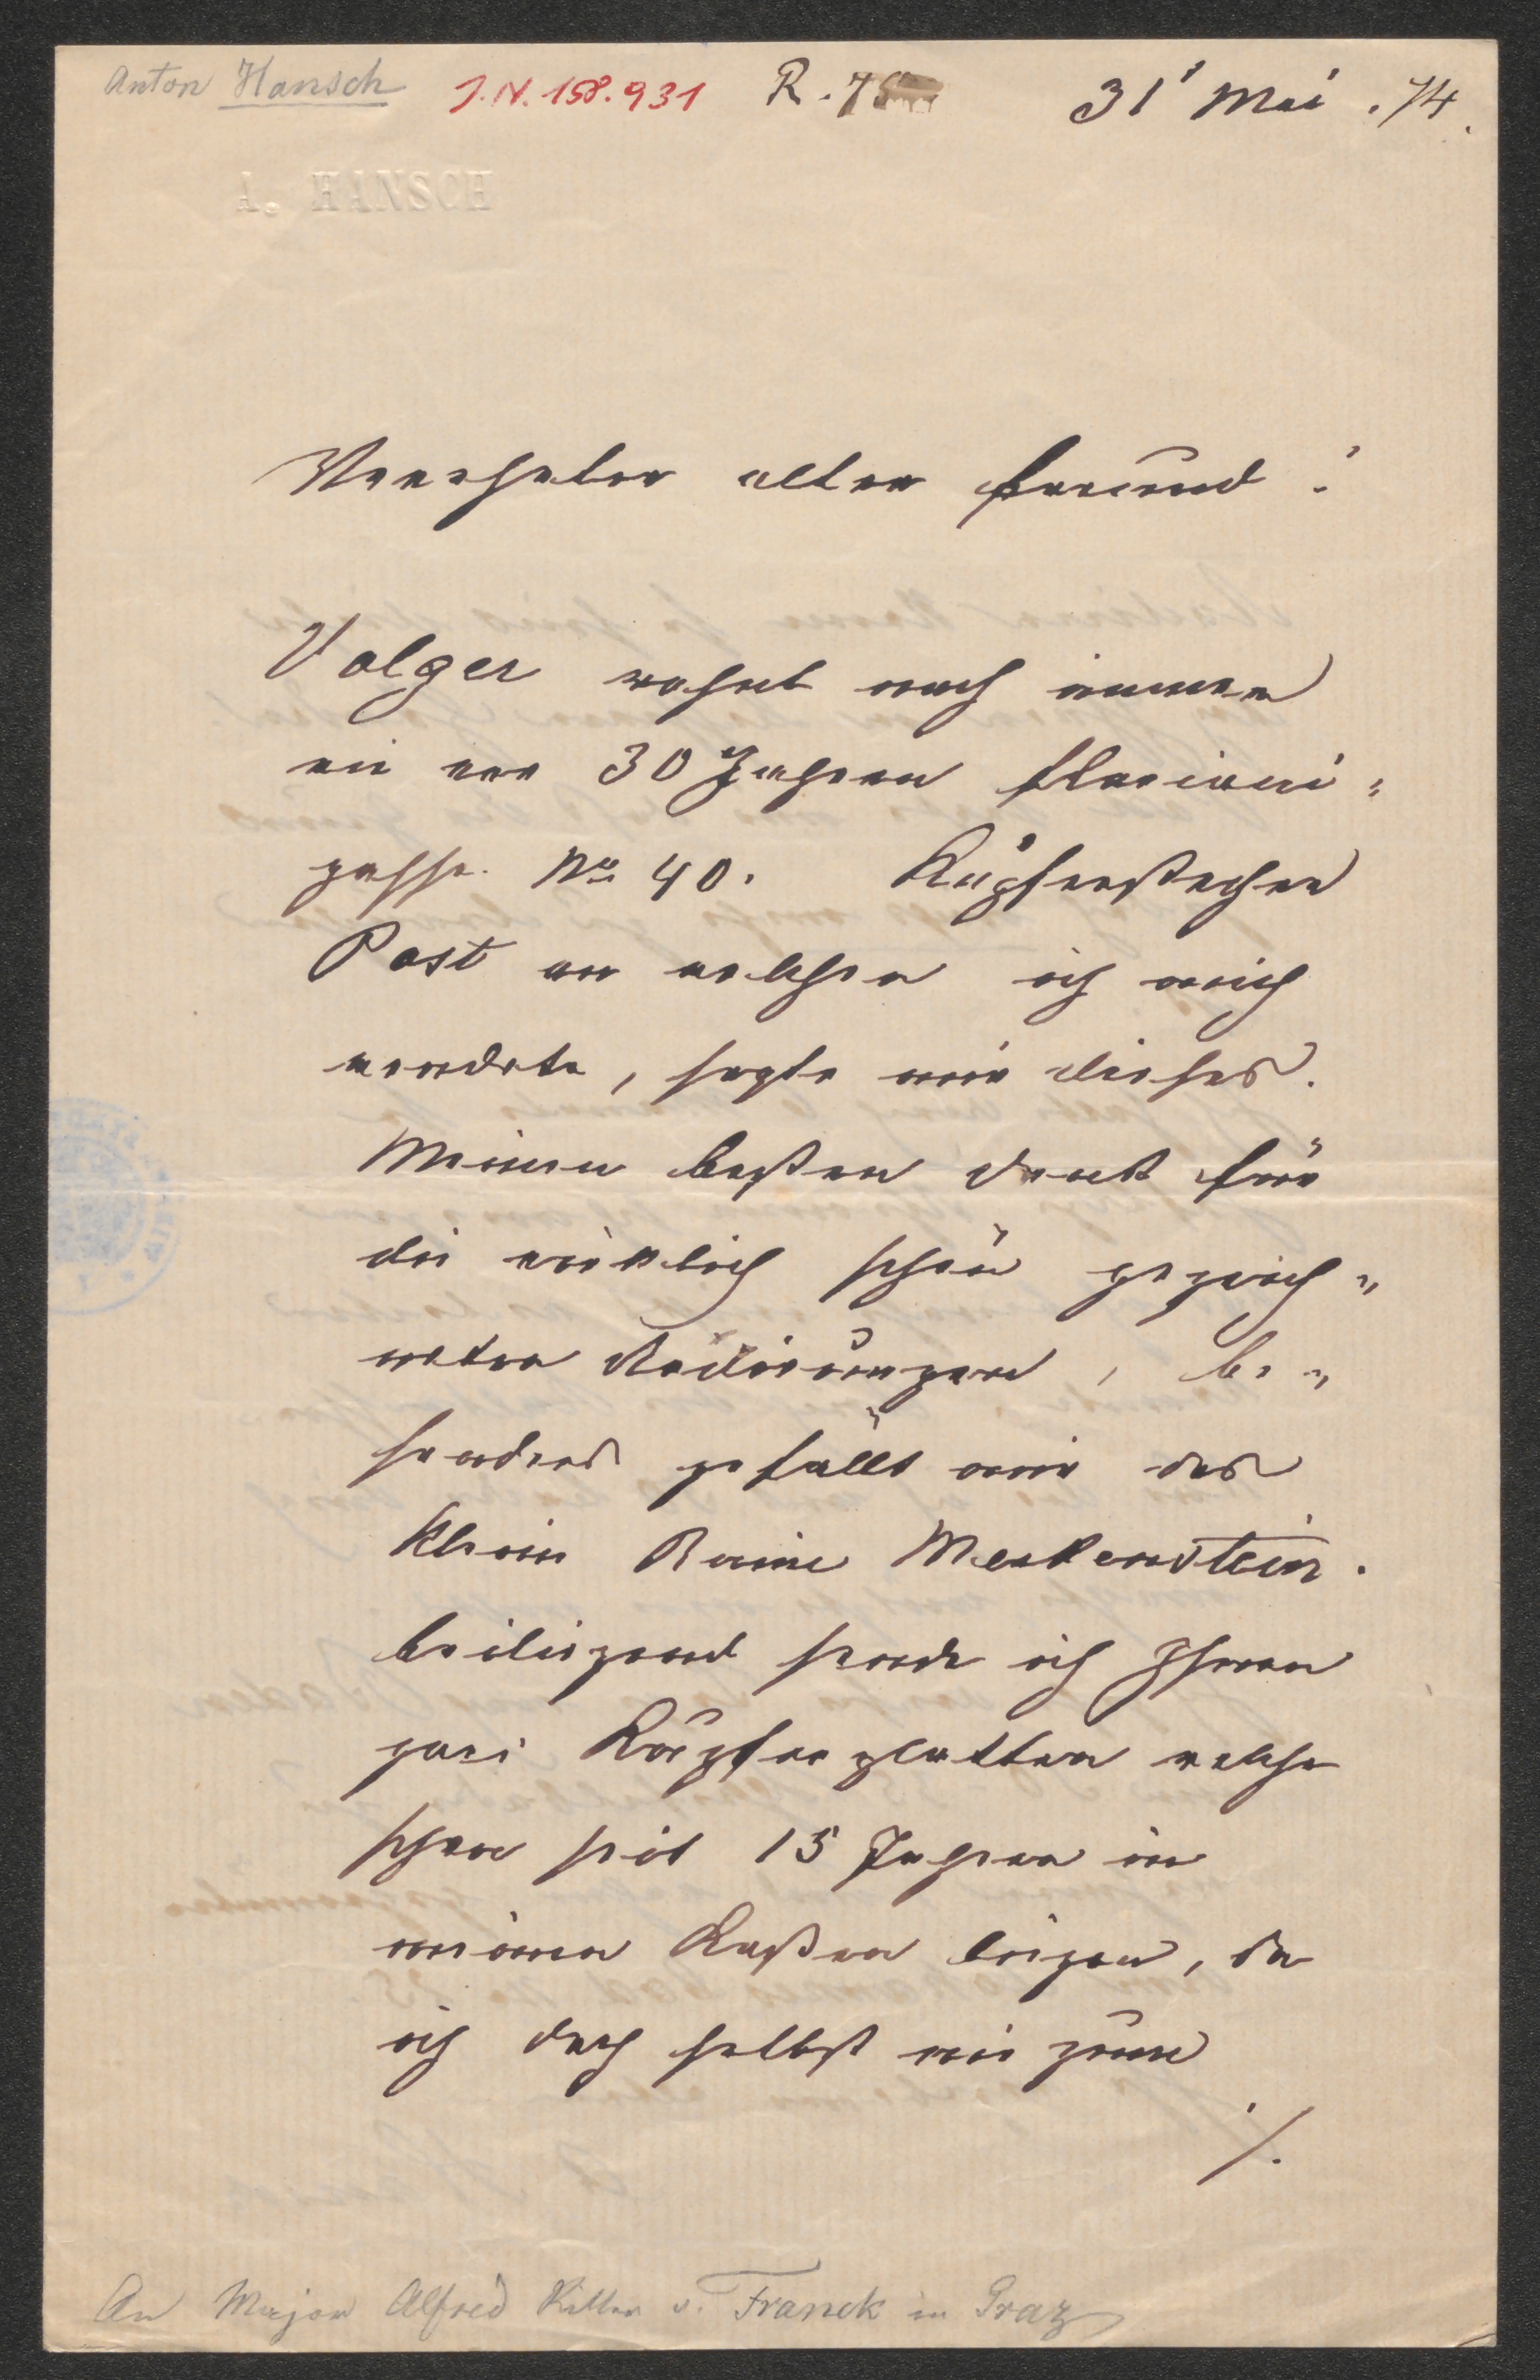 Anton Hansch J.N. 158.931 R. 75 31' Mai . 74.
A. HANSCH
Verehrter alter Freund!
Volger wohnt noch immer
wie vor 30 Jahren Floriani=
gasse No 40. Kupferstecher
Post an welchen ich mich
wendete, sagte mir dieses.
Meinen besten Dank für
die wirklich schön gezeich=
neten Radirungen, be=
sonders gefällt mir das
klein Ruine Merkenstein.
beiliegend sende ich Ihnen
zwei Kupferplatten welche
schon seit 15 Jahren in
meinem Kasten liegen, da
ich doch selbst nie zum
./.
An Major Alfred Ritter v. Franck in Graz